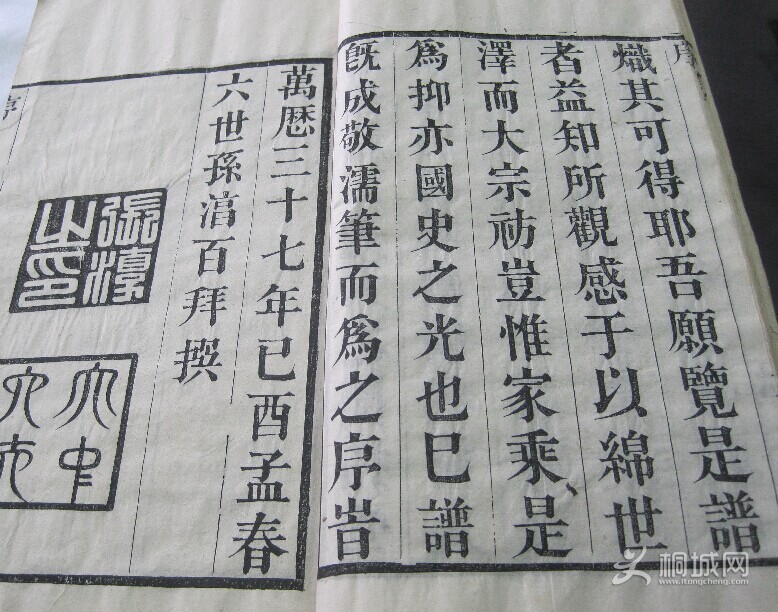 序
熾其可得耶吾願覽是譜
者益知所觀感于以綿世
澤而大宗祊豈惟家乘是
爲抑亦國史之光也巳譜
旣成敬濡筆而爲之序旹
萬厯三十七年已酉孟春
六世孫湻百拜撰
張淳之印
大中大夫
桐城网
www.itongcheng.com